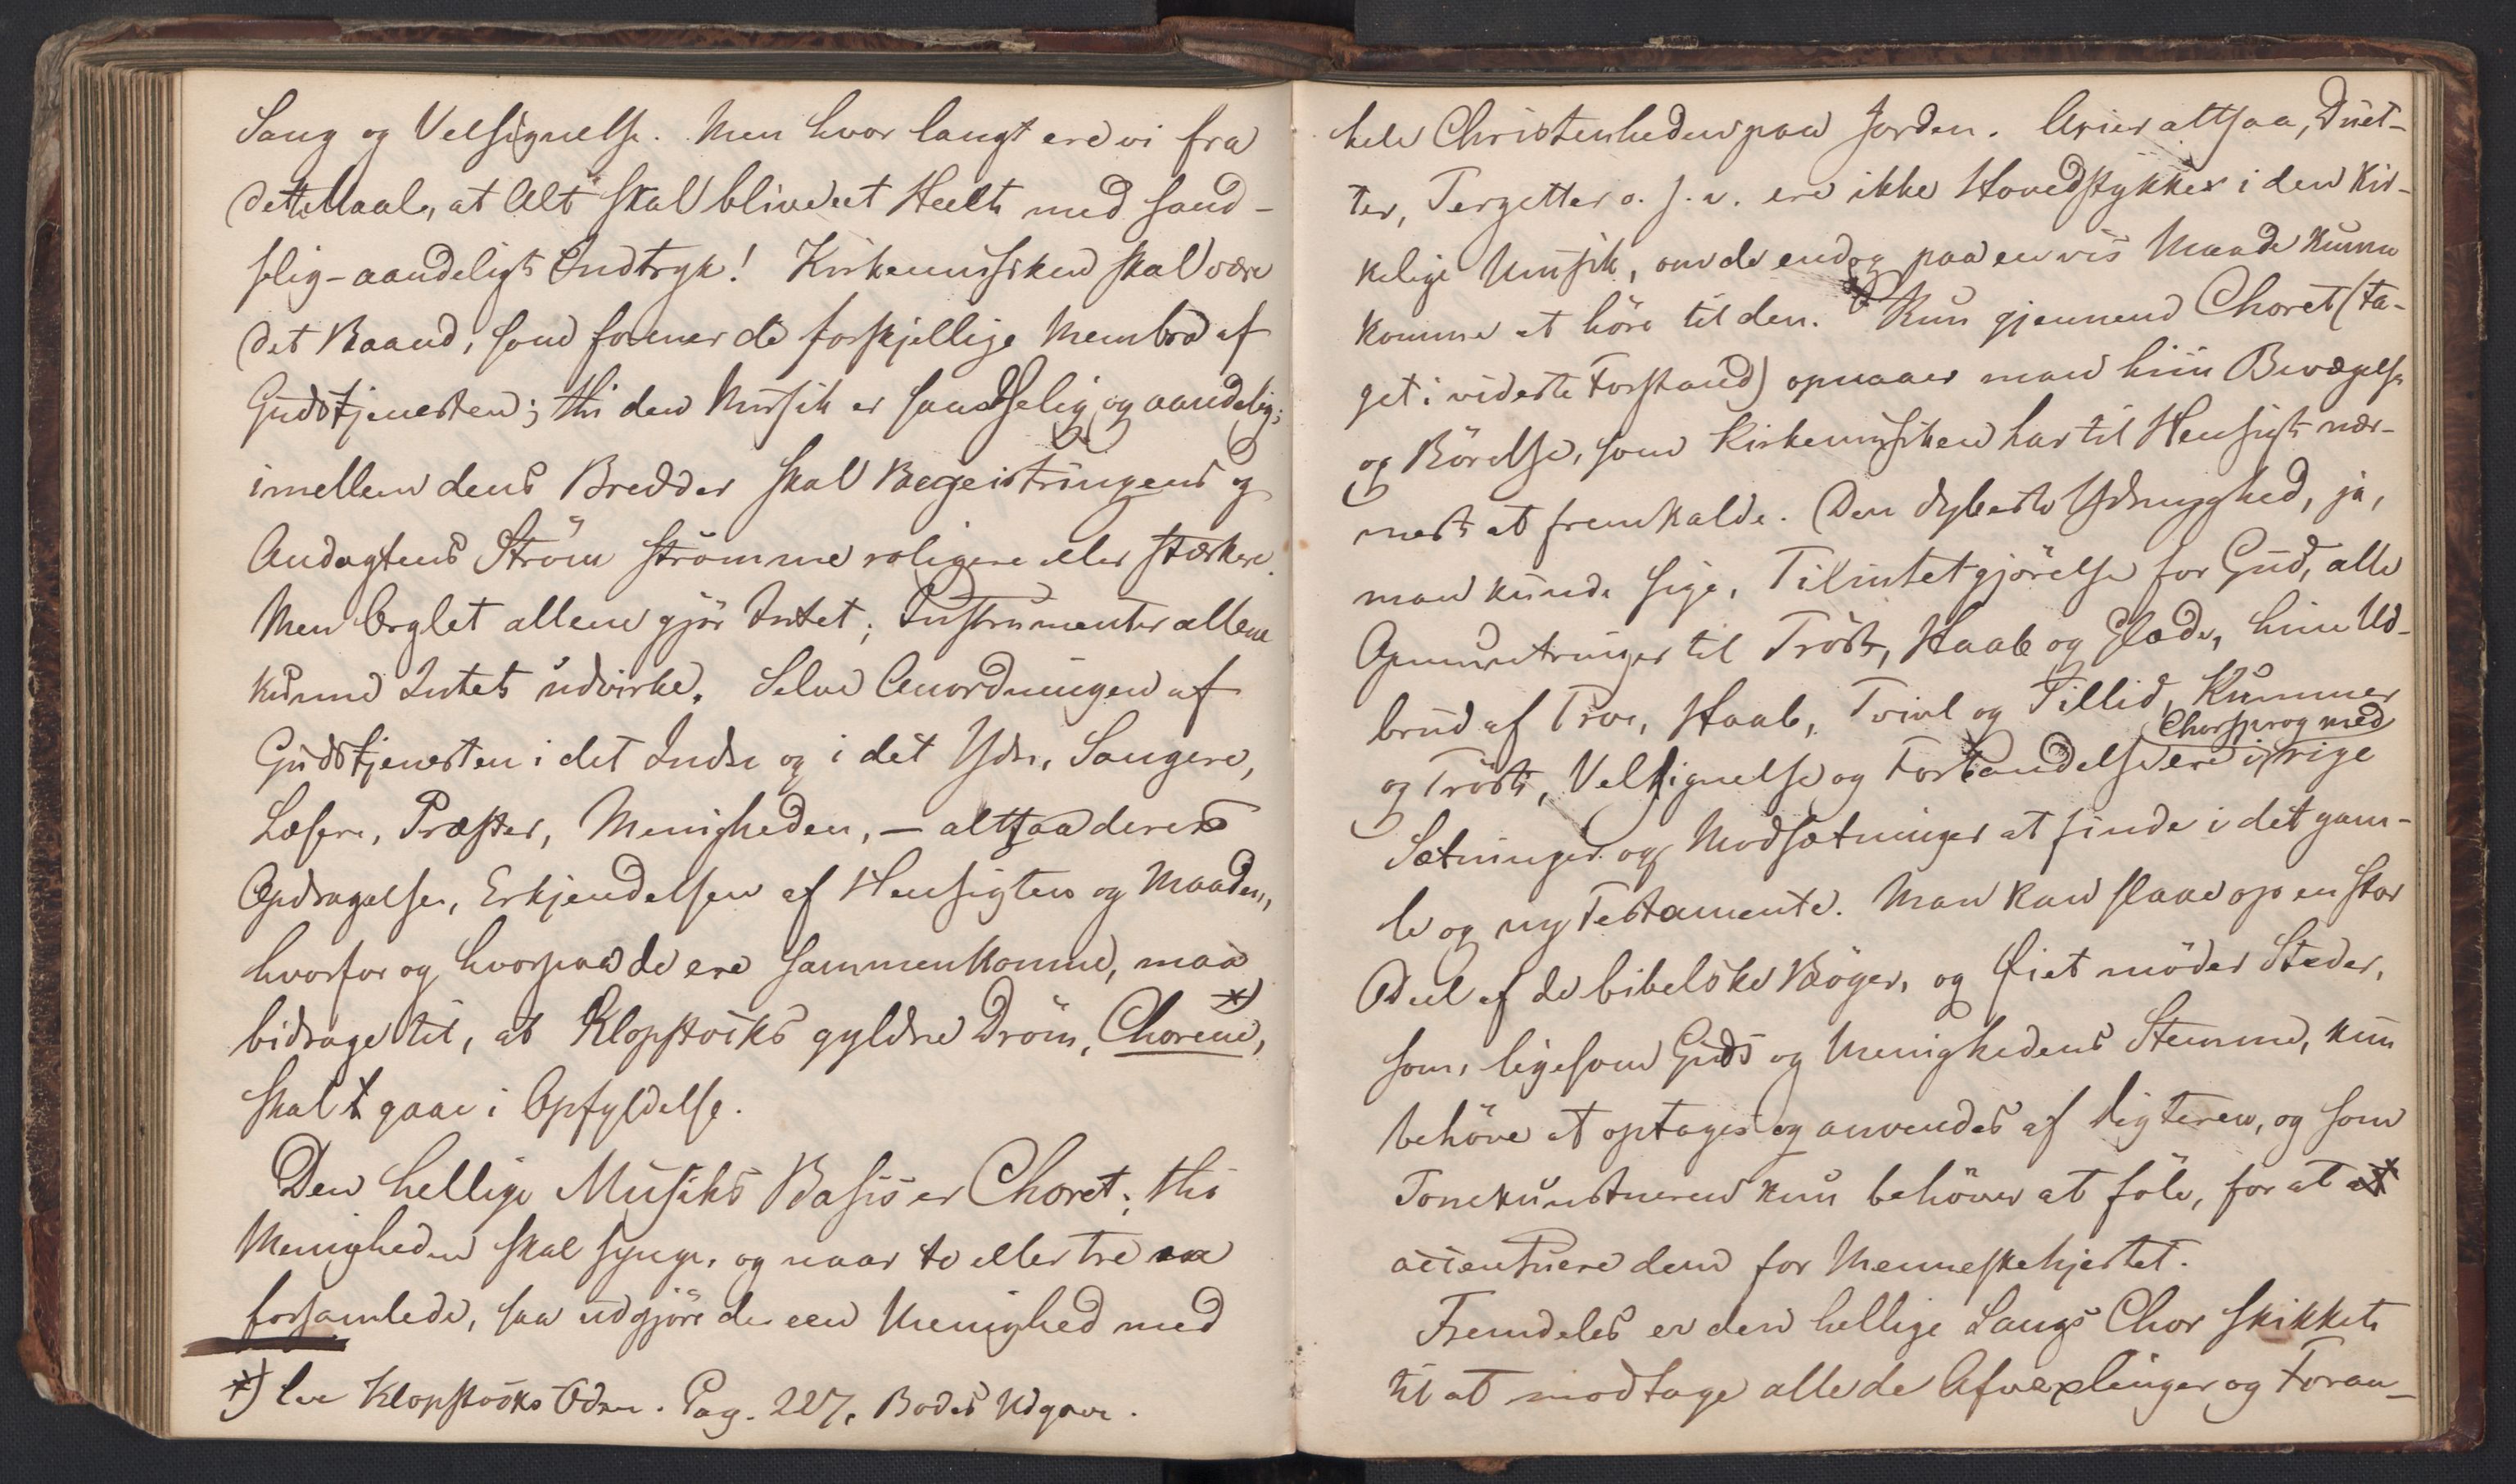 Sang og Velsignelse. Men hvor langt ere vi fra
dette Maal, at Alt skal blive eet Heelt med sand-
selig-aandeligt Indtryk! Kirkemusiken skal være
det Baand, som forener de forskjellige Membra af
Gudstjenesten; thi den Musik er sandselig og aandelig;
imellem dens Bredder skal Begeistringens og
Andagtens Ström strömme roligere eller stærkere.
Men Orglet allene gjör Intet; Instrumenter allene
kunne Intet udvirke. Selve Anordningen af
Gudstjenesten i det Indre og i det Ydre, Sangere,
Læsere, Præster, Menigheden, – altsaa deres
Opdragelse, Erkjendelsen af Hensigten og Maaden,
hvorfor og hvorpaa de ere sammenkomne, maa
bidrage til, at Klopstocks gyldne Dröm, Chorene, *)
skal gaae i Opfyldelse.
Den hellige Musiks Basis er Choret; thi
Menigheden skal synge, og naar to eller tre ere
forsamlede, saa udgjöre de een Menighed med
*) See Klopstocks Oden. Pag. 227, Bodes Udgave.
hele Christenheden paa Jorden. Arier altsaa, Duet-
ter, Terzetter o. s. v. ere ikke Hovedstykker i den kir-
kelige Musik, om de endog paa en vis Maade kunne
komme at höre til den. Kun gjennem Choret (ta-
get i videste Forstand) opnaaer man hiin Bevægelse
og Rörelse, som Kirkemusiken har til Hensigt nær-
mest at fremkalde. Den dybeste Ydmyghed, ja,
man kunde sige, Tilintetgjörelse for Gud, alle
Opmuntringer til Tröst, Haab og Glæde, hine Ud-
brud af Troe, Haab, Tvivl og Tillid, Kummer
og Tröst, Velsignelse og Forbandelse ere i Chorsprog med rige
Sætninger og Modsætninger at finde i det gam-
le og ny Testamente. Man kan slaae op en stor
Deel af de bibelske Böger, og Öiet möder Steder,
som, ligesom Guds og Menighedens Stemme, kun
behöve at optages og anvendes af Digteren, og som
Tonekunstneren kun behöver at föle, for at
accentuere dem for Menneskehjertet.
Fremdeles er den hellige Sangs Chor skikket
til at modtage alle de Afvexlinger og Foran-